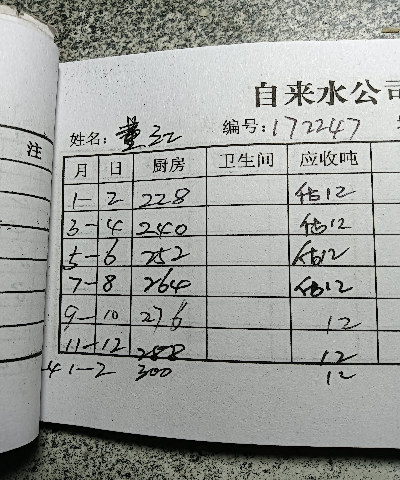 注
自来水公司
姓名: 董 编号: 172247
月 日 厨房 卫生间 应收吨
1-2 228 估12
3-4 240 估12
5-6 252 估12
7-8 264 估12
9-10 276 12
11-12 288 12
4 1-2 300 12